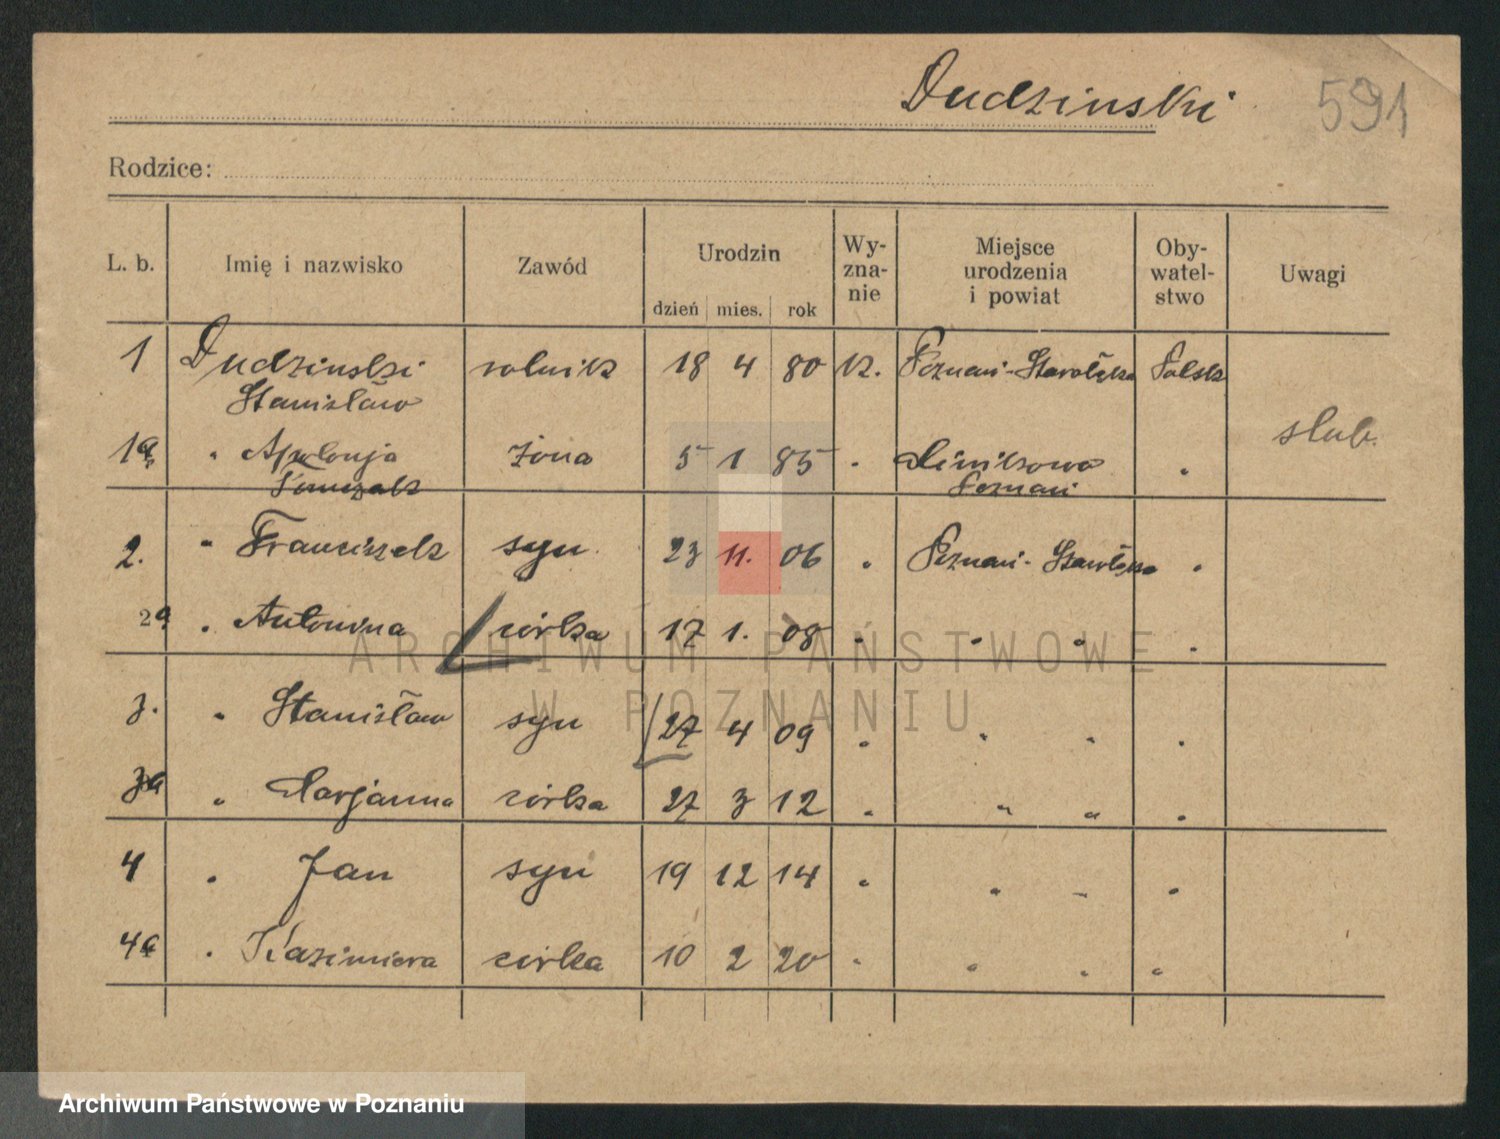 Dudzinski
591
Rodzice:
L. b. Imię i nazwisko Zawód Urodzin Wy- Miejsce Oby- Uwagi
zna- urodzenia watel-
dzień mies. rok nie i powiat stwo
1 Dudzinski rolnik 18 4 80 k. Poznań-Starołęka Polsk
Stanisław
slub.
1a " Apolonja żona 5 1 85 " Minikowo "
Tomczak Poznań
2. " Franciszek syn 23 11. 06 " Poznań-Starołęka "
2a " Antonina córka 17 1. 08 " " " "
3. " Stanisław syn 27 4 09 " " " "
3a " Marjanna córka 27 3 12 " " " "
4 " Jan syn 19 12 14 " " " "
4a " Kazimiera córka 10 2 20 " " " "
ARCHIWUM PAŃSTWOWE
W POZNANIU
Archiwum Państwowe w Poznaniu